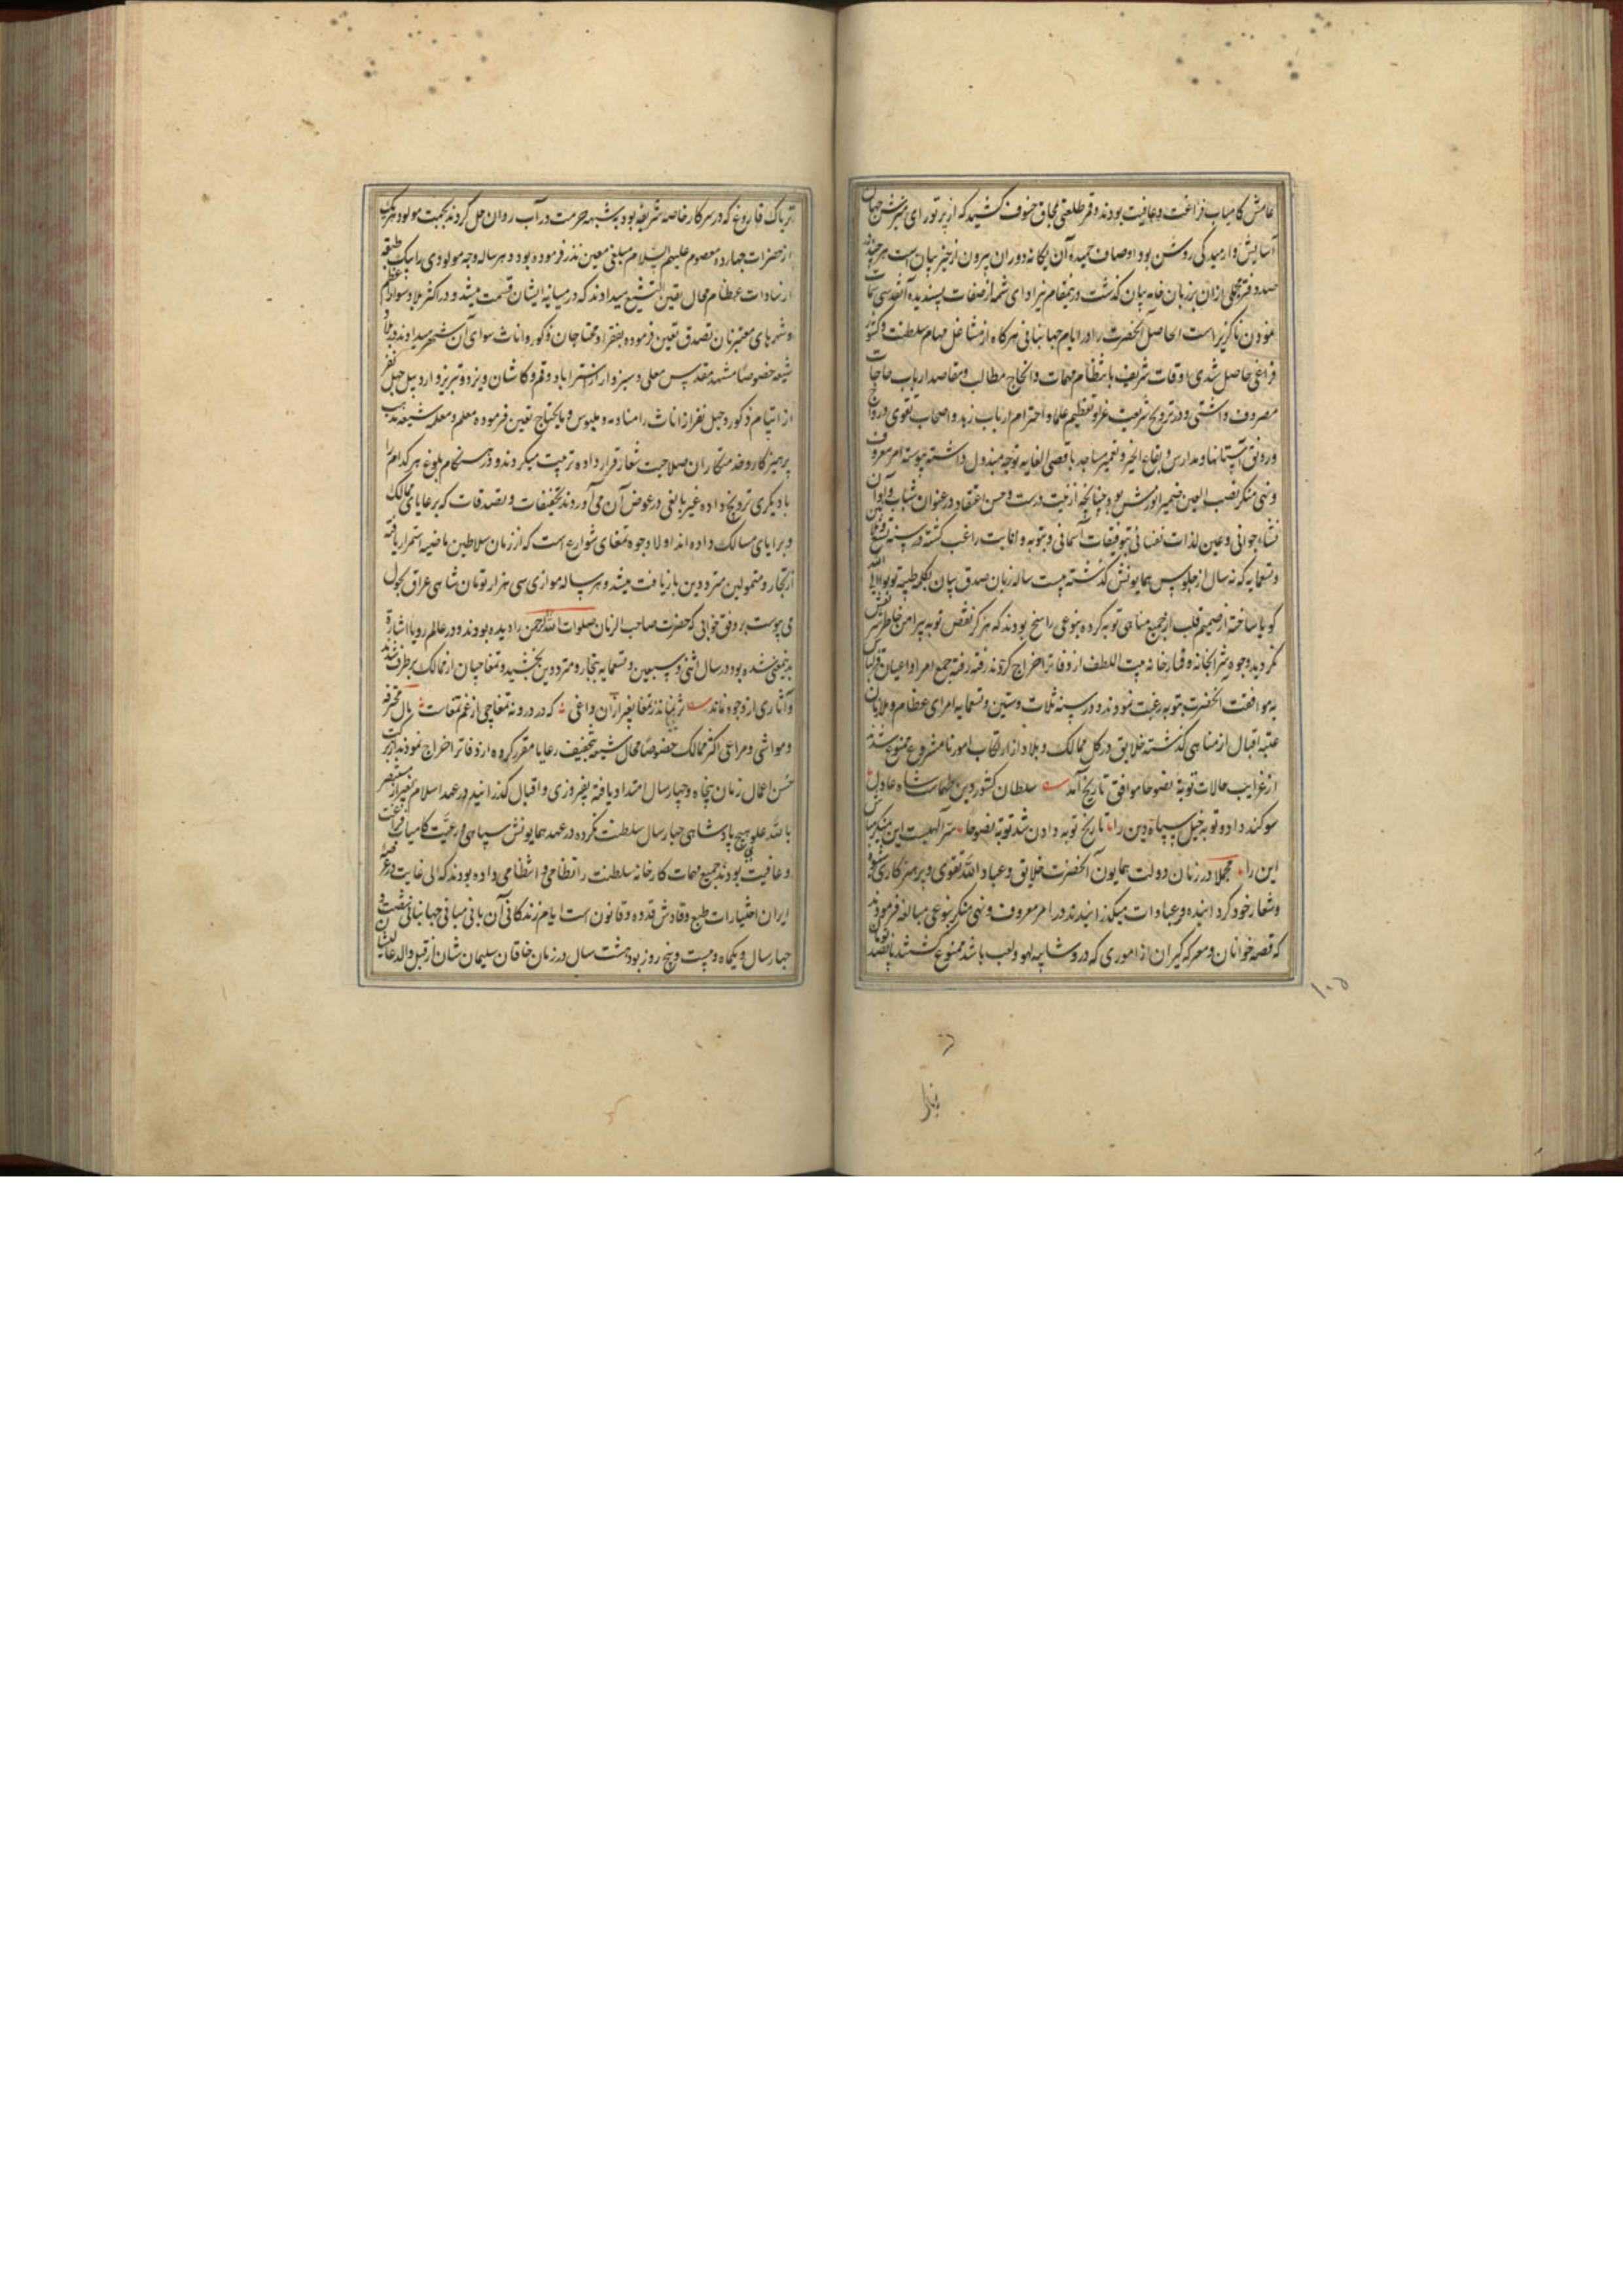 عامش کامیاب فراغت و عافیت بودند و قمر طلعتی بمحاق خسوف کشید که از پرتو رای منیرش جهان
آسایش و ارمیدگی روشن بود اوصاف حمیده آن یگانه دوران بیرون از حیز بیان است هر چند
صد دفتر مجملی از آن بر زبان خامه بیان گذشت در ینمقام نیز ادای شمه از صفات پسندیده آنقدسی سمات
نمودن ناگزیر است الحاصل آنحضرت را در ایام جهانبانی هرگاه از مشاغل مهام سلطنت و کشور
فراغی حاصل شدی اوقات شریف بانتظام مهمات و انجاح مطالب و مقاصد ارباب حاجات
مصروف داشتی و در ترویج شریعت غرا و تعظیم علما و احترام ارباب زهد و اصحاب تقوی و رواج
و رونق آستانها و مدارس و بقاع الخیر و تعمیر مساجد باقصی الغایه توجه مبذول داشته پیوسته امر معروف
و نهی منکر نصب العین ضمیر انورش بود چنانچه از نیت درست و حسن اعتقاد در عنوان شباب و اوان
نشاء جوانی و عین لذات نفسانی بتوفیقات آسمانی و بتوبه و انابت راغب گشته در سنه تسع و ثلثین
و تسعمایه که نه سال از جلوس همایونش گذشته بیست ساله زبان صدق بیان بکلمه طیبه توبوا الی الله
گویا ساخته از صمیم قلب از جمیع مناهی توبه کرده بنوعی راسخ بودند که هرگز نقض توبه پیرامن خاطرش
نگردید و وجوه شرابخانه و قمارخانه و بیت اللطف از دفاتر اخراج کردند رفته رفته جمیع امرا و اعیان قزلباش
به موافقت آنحضرت بتوبه رغبت نمودند و در سنه ثلاث و ستین و تسعمایه امرای عظام و ملازمان
عتبه اقبال از مناهی گذشته خلایق در کل ممالک و بلاد از ارتکاب امور نامشروع ممنوع شدند
از غرایب حالات توبة نصوحا موافق تاریخ آمد سلطان کشور دین طهماسب شاه عادل
سوگند داد و توبه خیل سپاه دین را تاریخ توبه دادن شد توبة نصوحا سر الهیست این منکر مباش
این را مجملا در زمان دولت همایون آنحضرت خلایق و عباد الله تقوی و پرهیزکاری شیوه
و شعار خود گردانیده و بعبادات میگذرانیدند در امر معروف و نهی منکر بنوعی مبالغه فرمودند
که قصه خوانان و معرکه گیران از اموری که در و شایبه لهو و لعب باشد ممنوع گشتند پانصد تومان
۱۰۵
تریاک فاروغ که در سرکار خاصه شریفه بود به شبهه حرمت در آب روان حل کردند بجهت مولود هر یک
از حضرات چهارده معصوم علیهم السلام مبلغی معین نذر فرموده بود و هر ساله وجه مولودی را بیک طبقه
از سادات عظام محال یقین التشیع میدادند که در میانه ایشان قسمت میشد و در اکثر بلاد سواد اعظم
و شهرهای معتبر نان تصدق تعین فرموده بفقرا و محتاجان ذکور و اناث سوای آن شهر میدادند و در بلاد
شیعه خصوصا مشهد مقدس معلی و سبزوار و استراباد و قم و کاشان و یزد و تبریز و اردبیل چهل نفر
از ایتام ذکور و چهل نفر از اناث را منادمه و ملبوس و مایحتاج تعین فرموده معلم و معلمه شیعه مذهب
پرهیزکار و خدمتکاران صلاحیت شعار قرار داده تربیت میکردند و در هنگام بلوغ هر کدام را
با دیگری تزویج داده غیر بالغی در عوض آن می آوردند تخفیفات و تصدقات که برعایای ممالک
و برایای مسالک داده اند اولا وجوه تمغای شوارع است که از زمان سلاطین ماضیه استمرار یافته
از تجار و متمولین مترددین بازیافت میشد و هر ساله موازی سی هزار تومان شاهی عراق بحول
می پیوست بر وفق خوابی که حضرت صاحب الزمان صلوات الله الرحمن را دیده بودند و در عالم رویا اشاره
بدینمعنی شده بود در سال اثنی و سبعین و تسعمایه بتجار و مترددین بخشیده تمغاچیان از ممالک برطرف شدند
و آثاری از وجوه نماند ز تمغا بغیر از آن داغی که در درونه تمغاچی از غم تمغاست مال محترفه
و مواشی و مراعی اکثر ممالک خصوصا محال شیعه بتخفیف رعایا مقرر کرده از دفاتر اخراج نمودند از برکت
حسن اعمال زمان پنجاه و چهار سال امتداد یافته بفیروزی و اقبال گذرانید در عهد اسلام بغیر از مستنصر
بالله علوی هیچ پادشاهی چهار سال سلطنت نکرده در عهد همایونش سپاهی و رعیت کامیاب فراغت
و عافیت بودند جمیع مهمات کارخانه سلطنت را نظامی و انتظامی داده بودند که الی غایت در عرصه
ایران اختیارات طبع وقادش قدوه و قانون است ایام زندگانی آن بانی مبانی جهانبانی شصت و
چهار سال و یکماه و بیست و پنج روز بود هشت سال در زمان خاقان سلیمان شان از قبل والد عالیشان